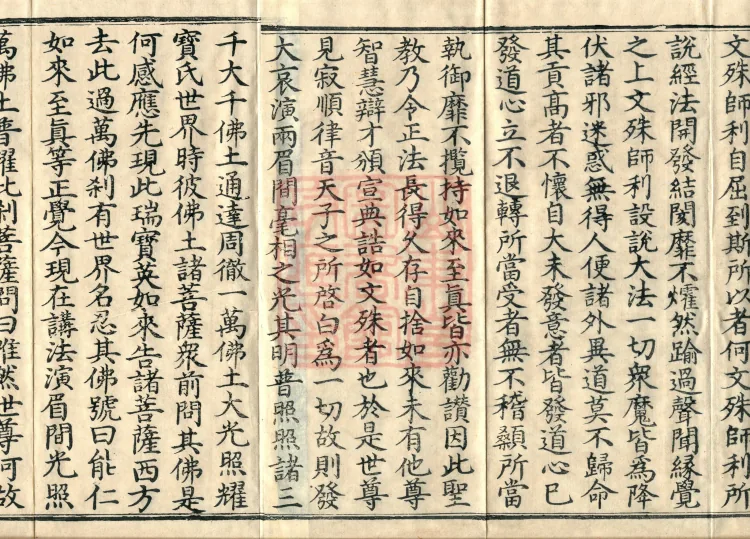 文殊師利自屈到斯所以者何文殊師利所
說經法開發結閡靡不然踰過聲聞緣覺
之上文殊師利設說大法一切衆魔皆爲降
伏諸邪迷惑無得人便諸外異道莫不歸命
其貢髙者不懷自大未發意者皆發道心已
發道心立不退轉所當受者無不稽顙所當
執御靡不攬持如來至眞皆亦勸讚因此聖
教乃令正法長得久存自捨如來未有他尊
智慧辯才頒宣典誥如文殊者也於是世尊
見寂順律音天子之所啓白爲一切故則發
大哀演兩眉間毫相之光其明普照照諸三
千大千佛土通達周徹一萬佛土大光照耀
寶氏世界時彼佛土諸菩薩衆前問其佛是
何感應先現此瑞寶英如來告諸菩薩西方
去此過萬佛刹有世界名忍其佛號曰能仁
如來至眞等正覺今現在講法演眉間光照
萬佛土普耀此刹菩薩問曰唯然世尊何故